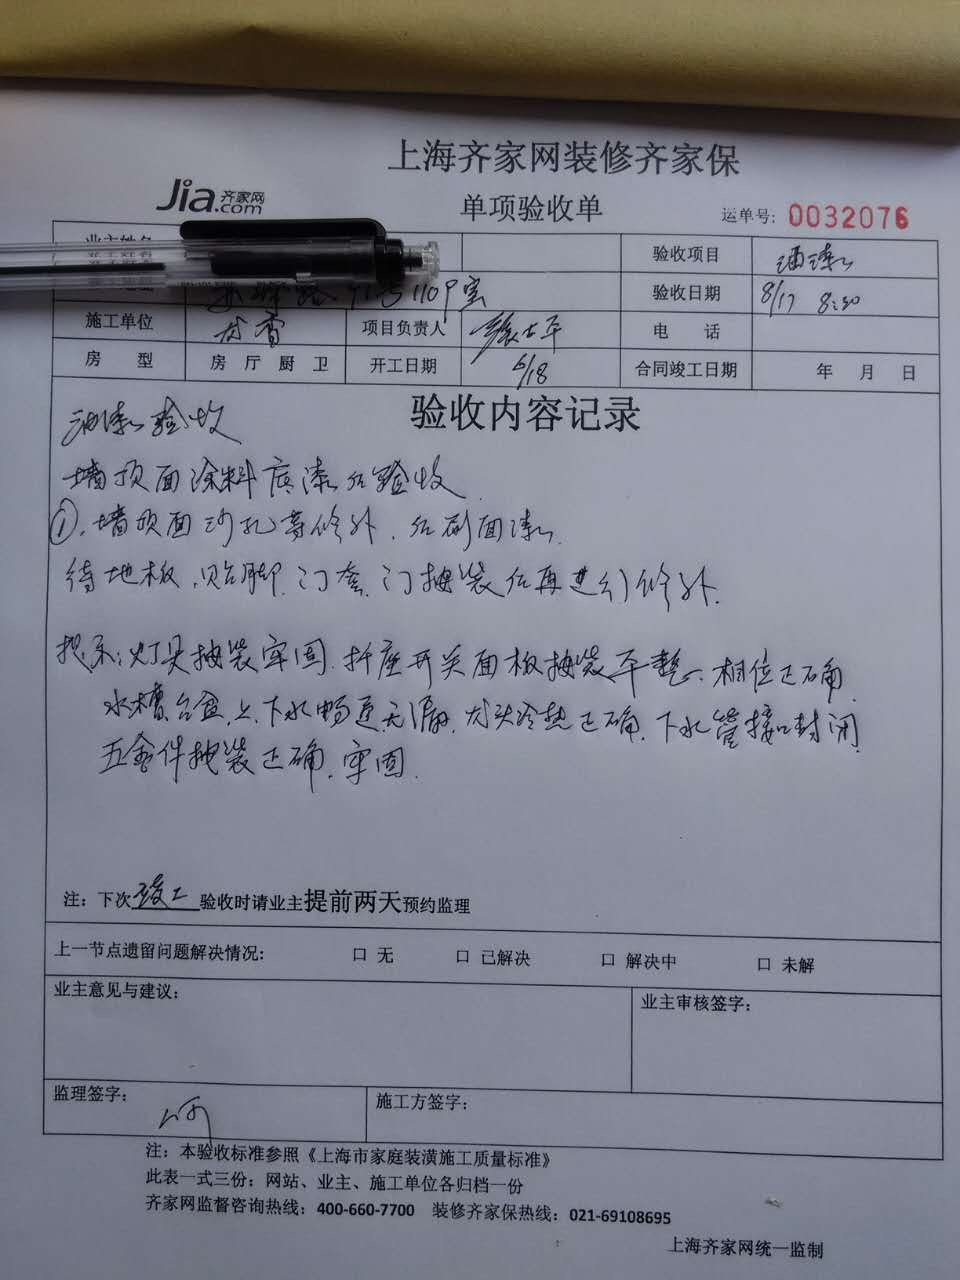 上海齐家网装修齐家保
Jia.com 齐家网
单项验收单
运单号: 0032076
业主姓名
验收项目 油漆
路 弄 1109室
验收日期 8/17 8:30
施工单位
项目负责人
电 话
房 型 房 厅 厨 卫 开工日期 6/18 合同竣工日期 年 月 日
验收内容记录
油漆验收
墙顶面涂料底漆后验收
①.墙顶面沙孔等修补.后刷面漆.
待地板.贴脚.门套.门按装后再进行修补.
提示:灯具按装牢固.插座开关面板按装平整.相位正确.
水槽台盆上.下水畅通无漏.龙头冷热正确.下水管接口封闭.
五金件按装正确.牢固.
注: 下次竣工验收时请业主提前两天预约监理
上一节点遗留问题解决情况: □ 无 □ 已解决 □ 解决中 □ 未解
业主意见与建议:
业主审核签字:
监理签字:
施工方签字:
注: 本验收标准参照《上海市家庭装潢施工质量标准》
此表一式三份: 网站、业主、施工单位各归档一份
齐家网监督咨询热线: 400-660-7700 装修齐家保热线: 021-69108695
上海齐家网统一监制